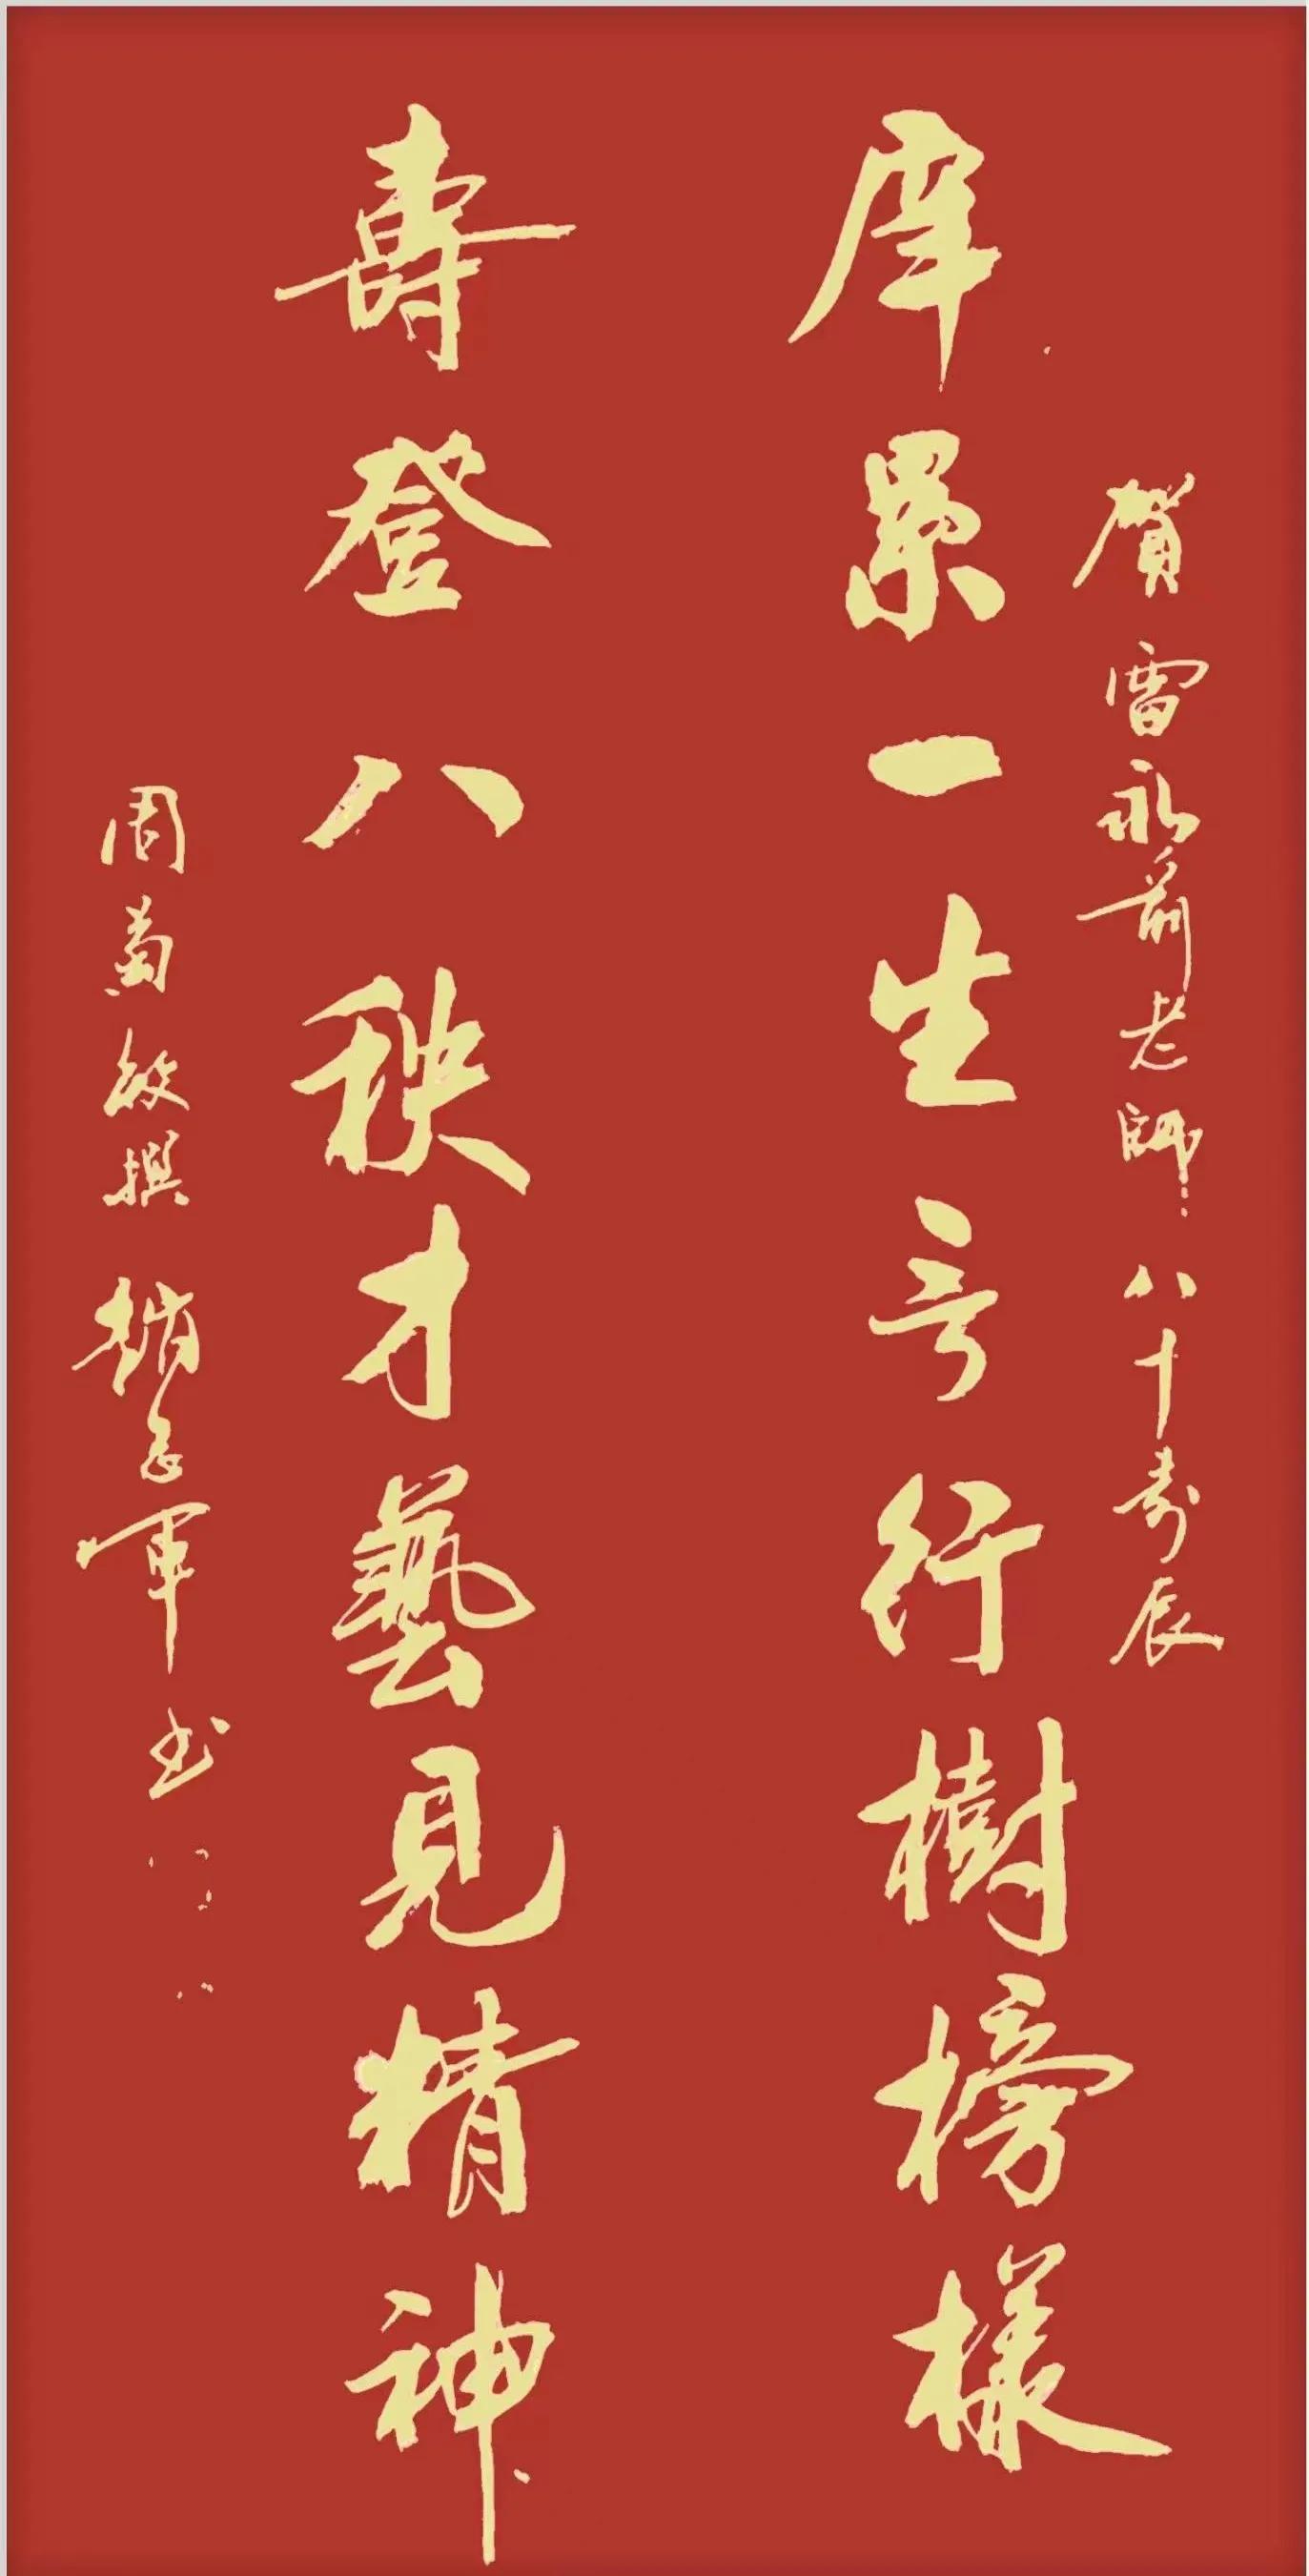 賀雷永前老師八十寿辰
庠累一生言行樹榜樣
壽登八秩才藝見精神
周菊敏撰 趙長軍书